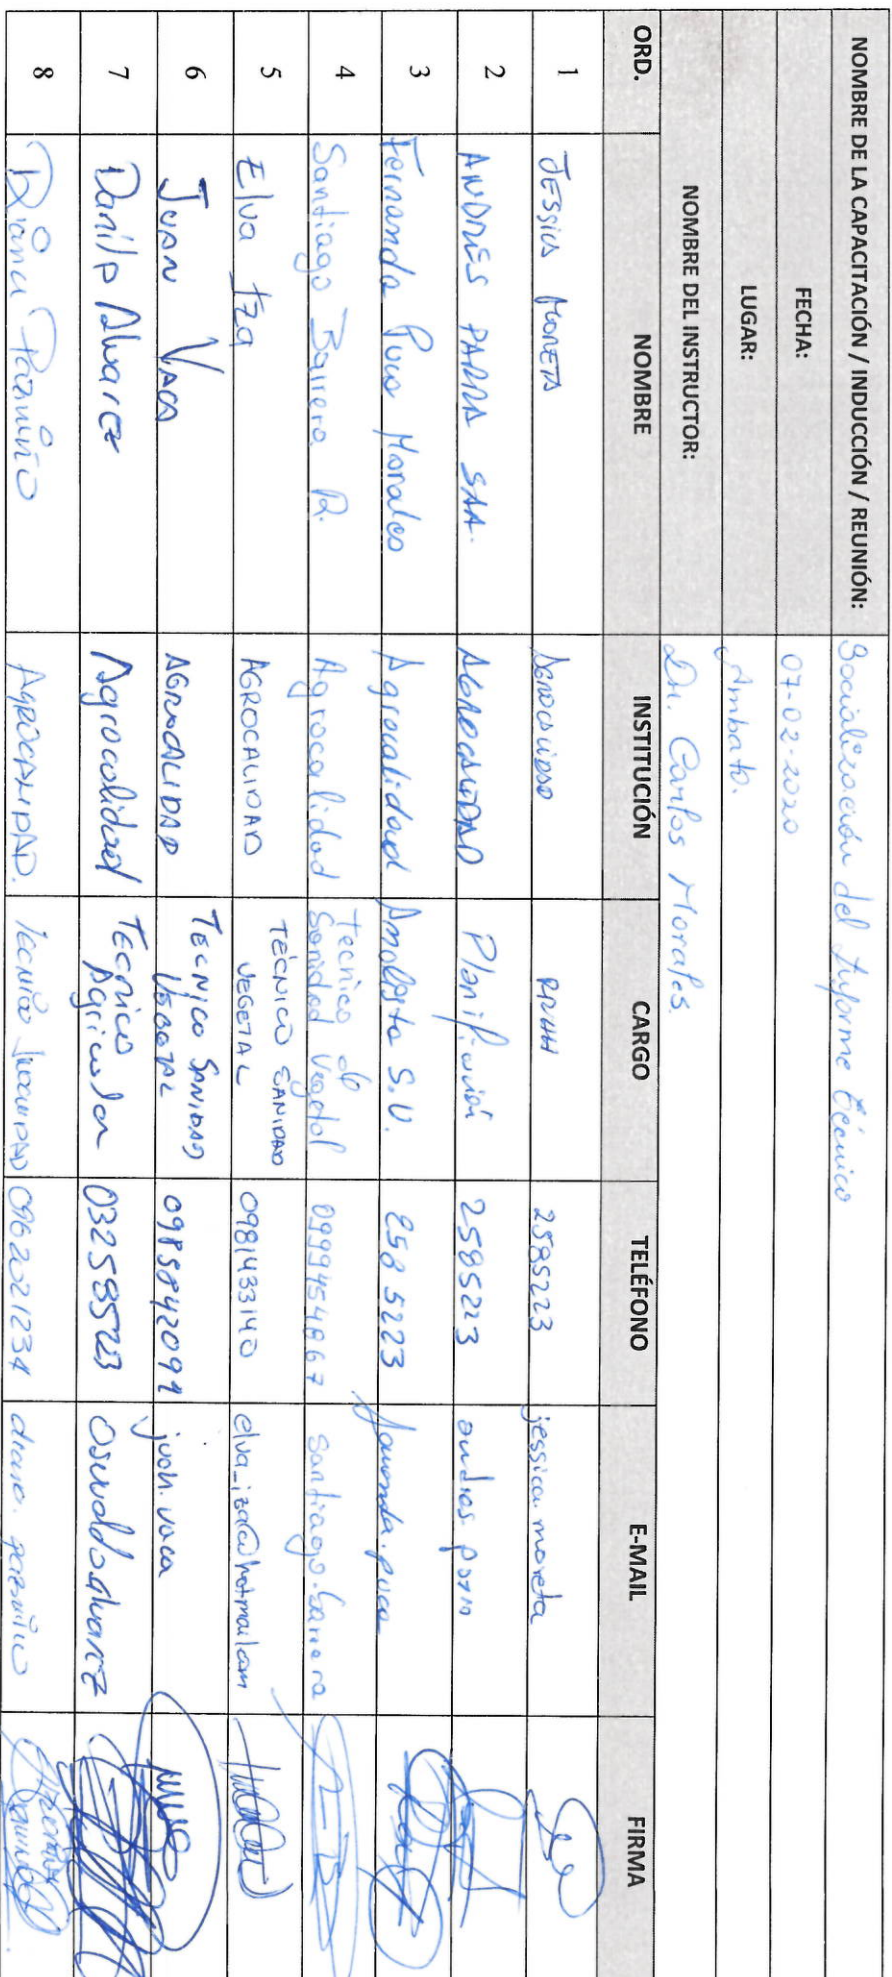 NOMBRE DE LA CAPACITACIÓN / INDUCCIÓN / REUNIÓN: Socialización del Informe técnico
FECHA: 07-02-2020
LUGAR: Ambato.
NOMBRE DEL INSTRUCTOR: Dr. Carlos Morales.
ORD. NOMBRE INSTITUCIÓN CARGO TELÉFONO E-MAIL FIRMA
1 JESSICA MORETA AGROCALIDAD RRHH 2585223 jessica.moreta
2 ANDRÉS PARRA SAA. AGROCALIDAD Planificación 2585223 andres.parra
3 Fernanda Puca Morales Agrocalidad Analista S.V. 258 5223 fernanda.puca
4 Santiago Barrera R. Agrocalidad Tecnico de Sanidad Vegetal 0999454867 santiago.barrera
5 Elva Iza AGROCALIDAD TECNICO SANIDAD VEGETAL 0981433140 elva_iza@hotmail.com
6 JUAN VACA AGROCALIDAD TECNICO SANIDAD VEGETAL juan.vaca
7 Danilo Alvarez Agrocalidad TECNICO Agricola 032585223 oswaldo.alvarez
8 Diana Pazmiño AGROCALIDAD. TECNICO INOCUIDAD 0962021234 diana.pazmiño